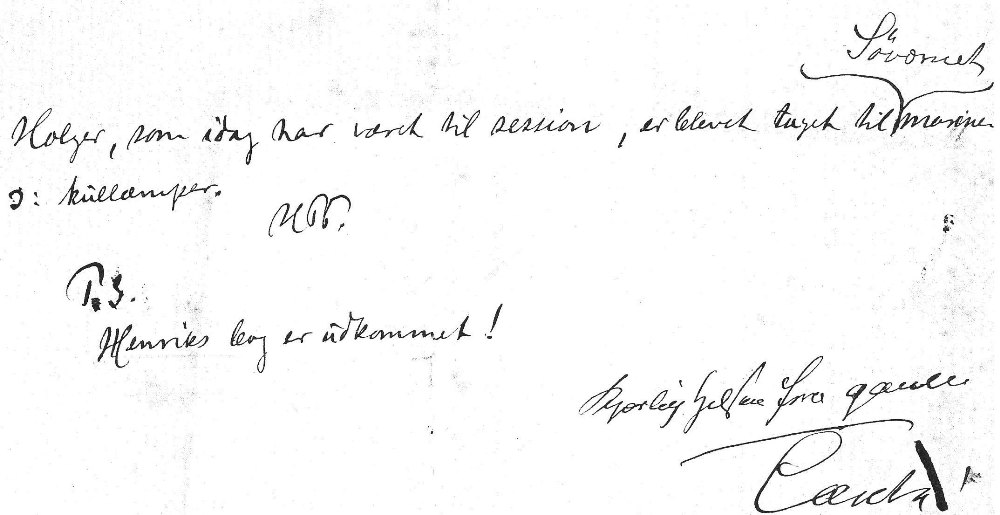 Søværnet
Holger, som idag har været til session, er blevet taget til marinen
ɔ: kullæmper.
HP.
P.S.
Henriks bog er udkommet!
Kjærlig hilsen fra gamle